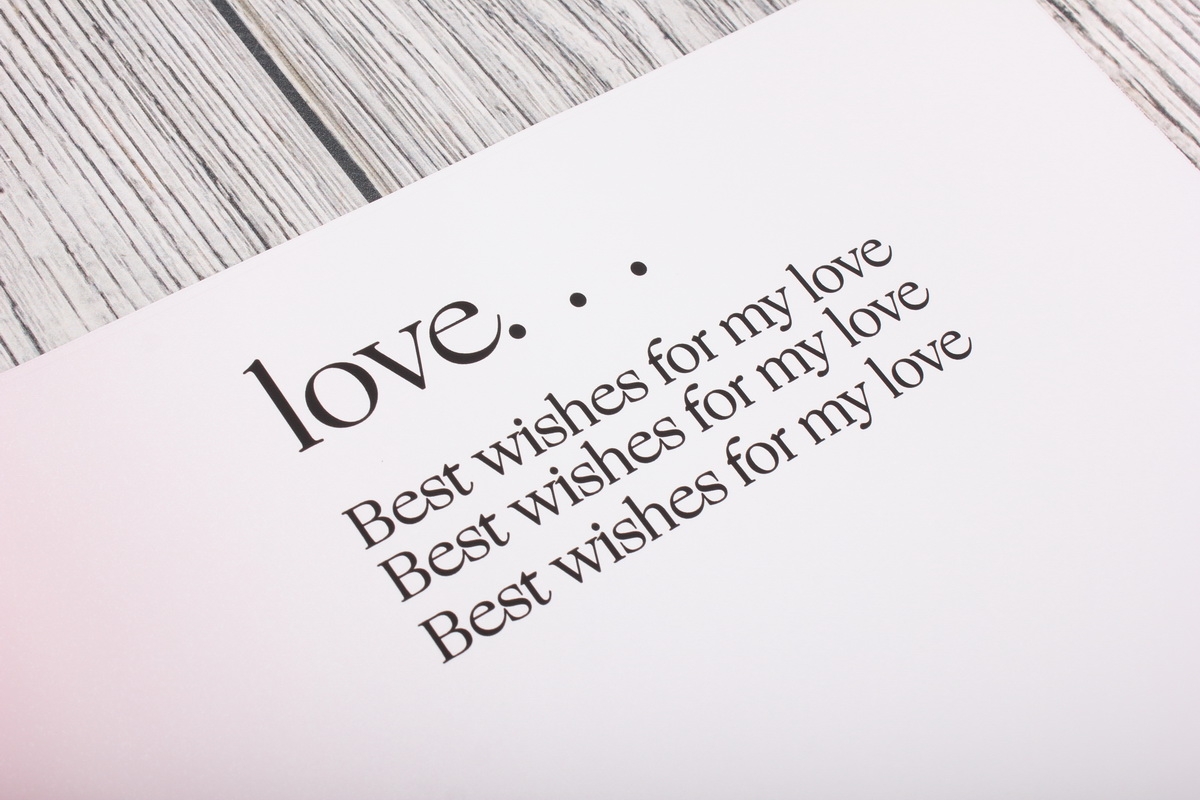 love. . .
Best wishes for my love
Best wishes for my love
Best wishes for my love